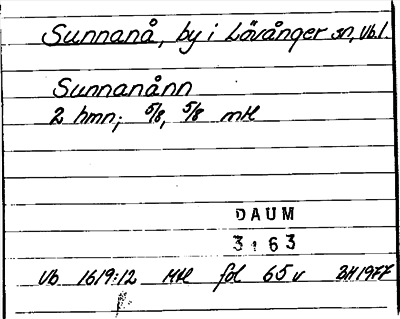 Sunnanå, by i Lövånger sn, Vb.l.
Sunnanånn
2 hmn; 5/8, 5/8 mtl
DAUM
3163
Vb 1619:12 Mtl fol 65 v BH 1977